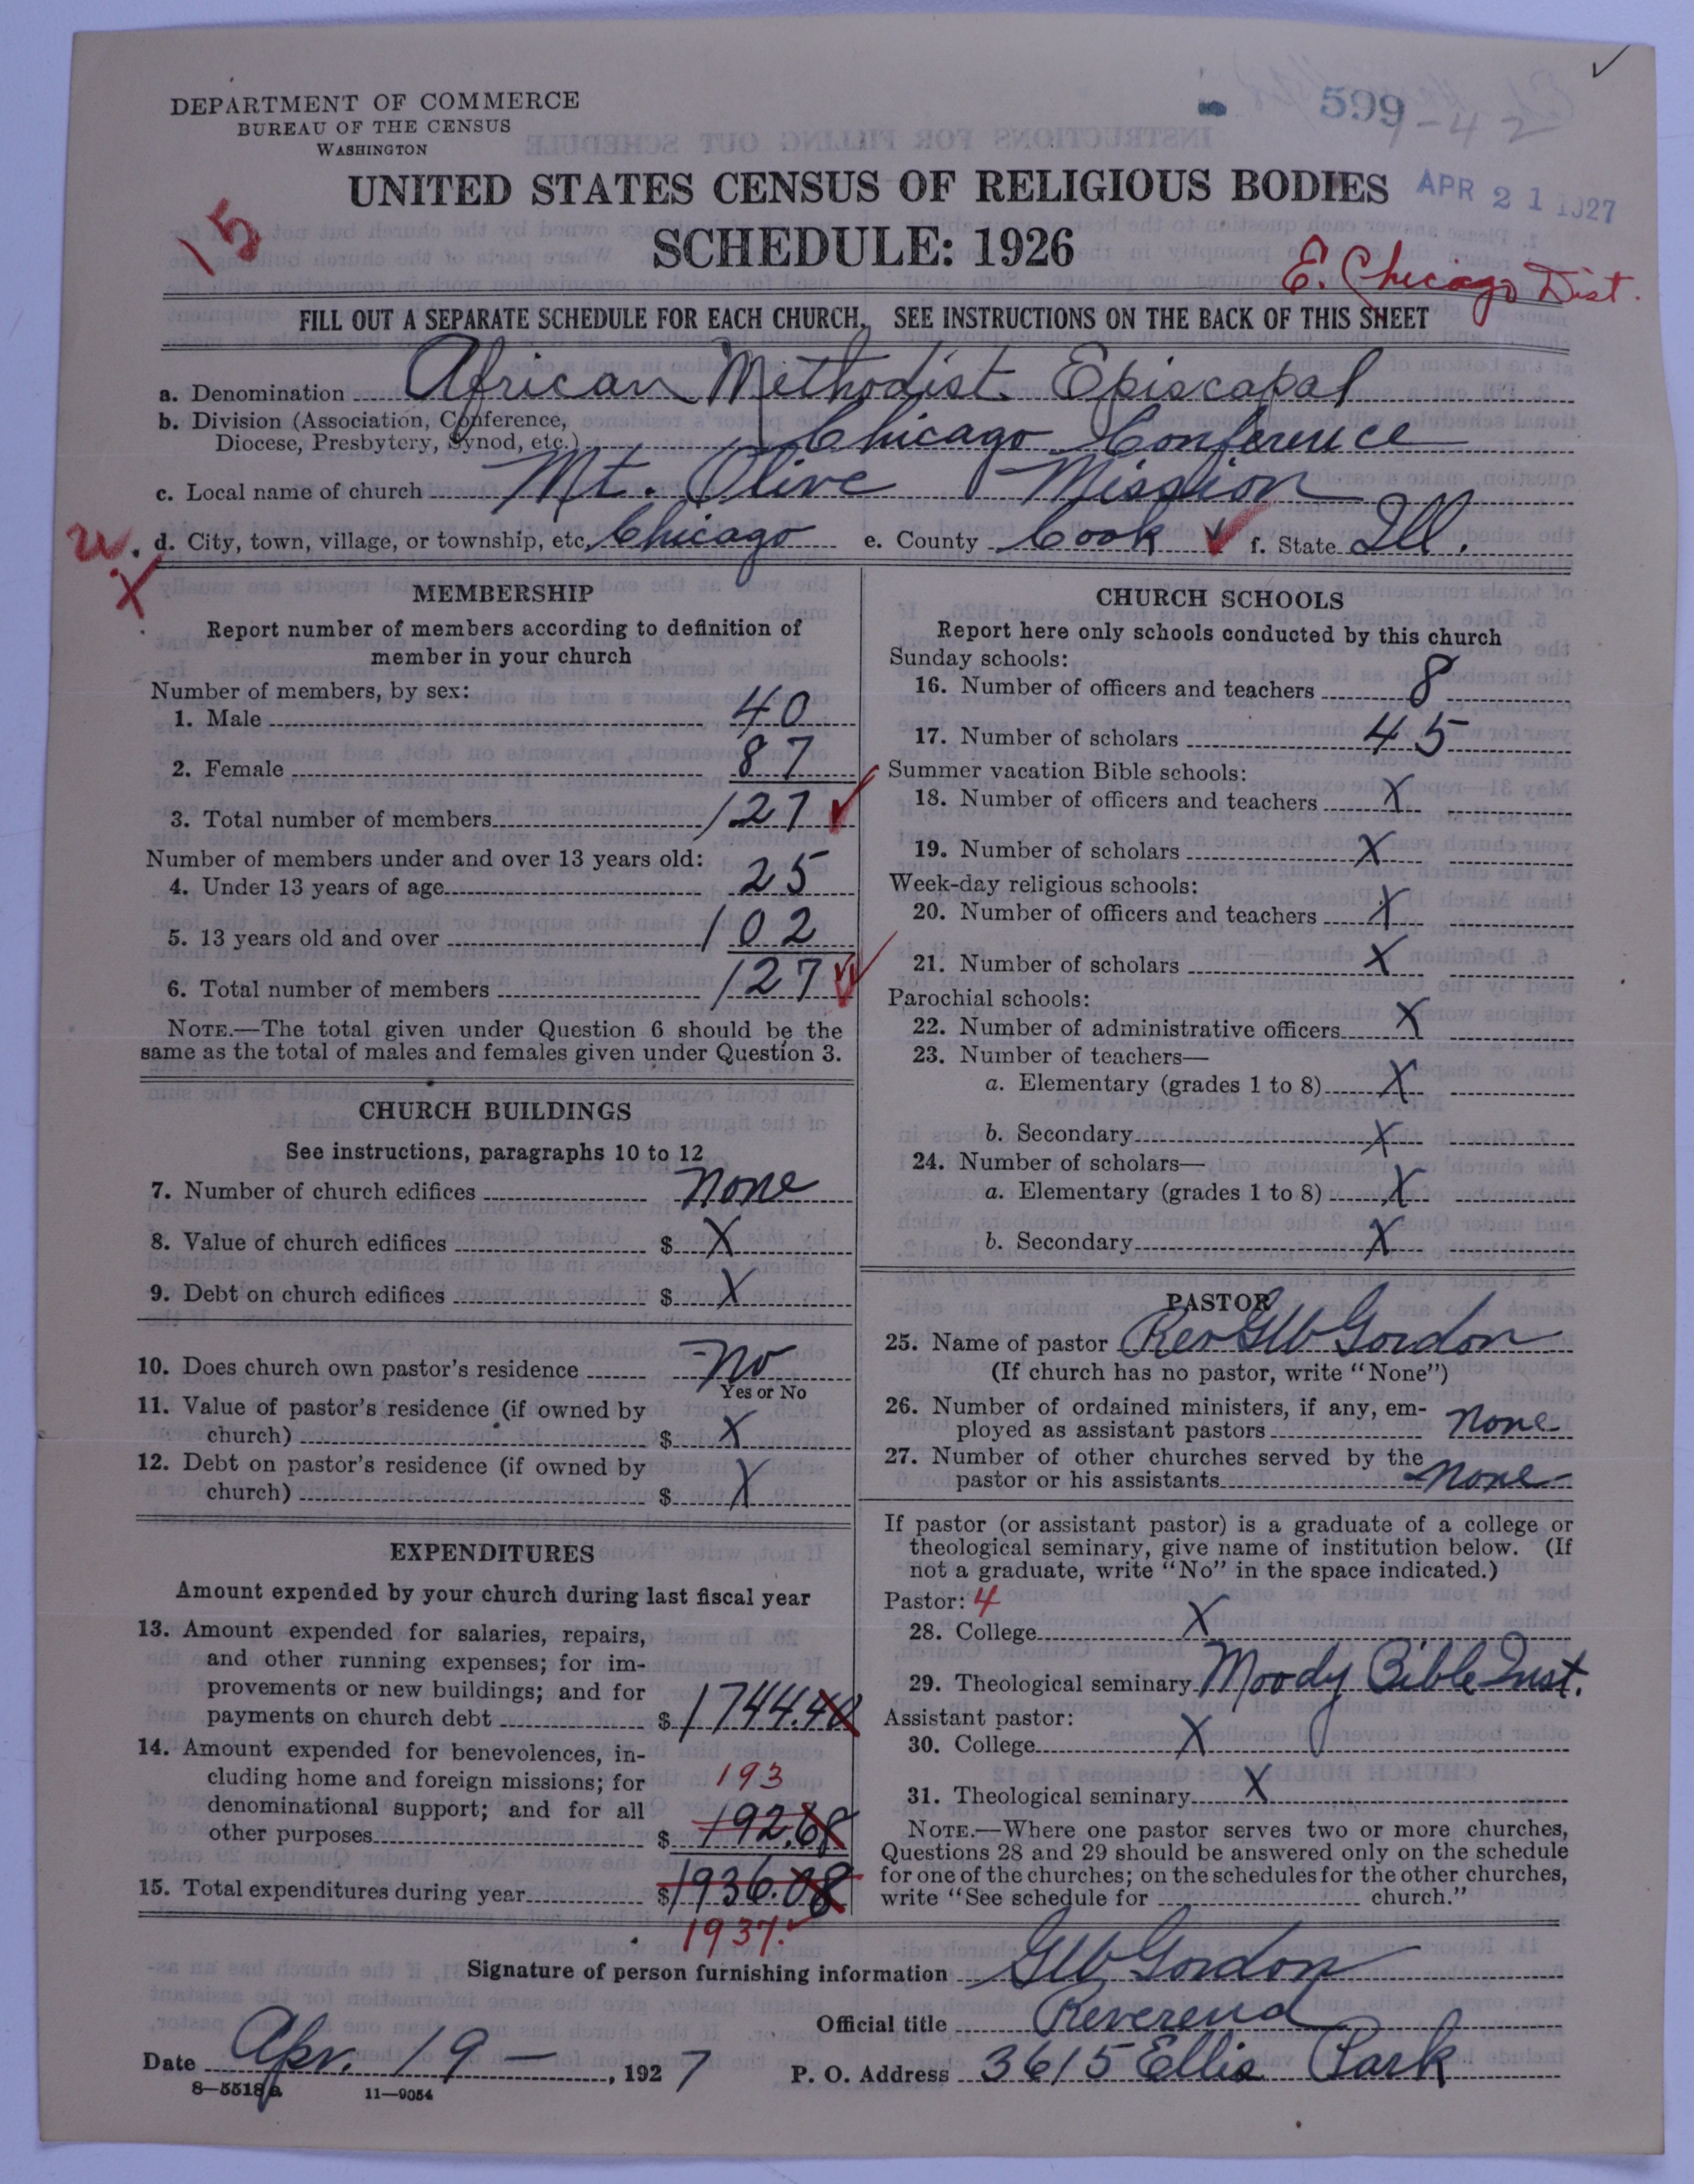 DEPARTMENT OF COMMERCE
BUREAU OF THE CENSUS
WASHINGTON
599
1-42
UNITED STATES CENSUS OF RELIGIOUS BODIES
APR 21 1927
15
SCHEDULE: 1926
E. Chicago Dist.
FILL OUT A SEPARATE SCHEDULE FOR EACH CHURCH. SEE INSTRUCTIONS ON THE BACK OF THIS SHEET
a. Denomination African Methodist Episcapal
b. Division (Association, Conference,
Diocese, Presbytery, Synod, etc.) Chicago Conference
c. Local name of church Mt. Olive Mission
u. d. City, town, village, or township, etc. Chicago e. County Cook f. State Ill.
X
MEMBERSHIP
Report number of members according to definition of
member in your church
Number of members, by sex:
1. Male 40
2. Female 87
3. Total number of members 127
Number of members under and over 13 years old:
4. Under 13 years of age 25
5. 13 years old and over 102
6. Total number of members 127
NOTE.—The total given under Question 6 should be the
same as the total of males and females given under Question 3.
CHURCH BUILDINGS
See instructions, paragraphs 10 to 12
7. Number of church edifices none
8. Value of church edifices $ X
9. Debt on church edifices $ X
10. Does church own pastor's residence no
Yes or No
11. Value of pastor's residence (if owned by
church) $ X
12. Debt on pastor's residence (if owned by
church) $ X
EXPENDITURES
Amount expended by your church during last fiscal year
13. Amount expended for salaries, repairs,
and other running expenses; for im-
provements or new buildings; and for
payments on church debt $ 1744.40
14. Amount expended for benevolences, in-
cluding home and foreign missions; for 193
denominational support; and for all
other purposes $ 192.68
15. Total expenditures during year $ 1936.08
1937.
CHURCH SCHOOLS
Report here only schools conducted by this church
Sunday schools:
16. Number of officers and teachers 8
17. Number of scholars 45
Summer vacation Bible schools:
18. Number of officers and teachers X
19. Number of scholars X
Week-day religious schools:
20. Number of officers and teachers X
21. Number of scholars X
Parochial schools:
22. Number of administrative officers X
23. Number of teachers—
a. Elementary (grades 1 to 8) X
b. Secondary X
24. Number of scholars—
a. Elementary (grades 1 to 8) X
b. Secondary X
PASTOR
25. Name of pastor Rev GW Gordon
(If church has no pastor, write "None")
26. Number of ordained ministers, if any, em-
ployed as assistant pastors none
27. Number of other churches served by the
pastor or his assistants none
If pastor (or assistant pastor) is a graduate of a college or
theological seminary, give name of institution below. (If
not a graduate, write "No" in the space indicated.)
Pastor: 4
28. College X
29. Theological seminary Moody Bible Inst.
Assistant pastor:
30. College X
31. Theological seminary X
NOTE.—Where one pastor serves two or more churches,
Questions 28 and 29 should be answered only on the schedule
for one of the churches; on the schedules for the other churches,
write "See schedule for church."
Signature of person furnishing information GW Gordon
Official title Reverend
Date Apr. 19 — , 1927 P. O. Address 3615 Ellis Park
8—5518a 11—9054